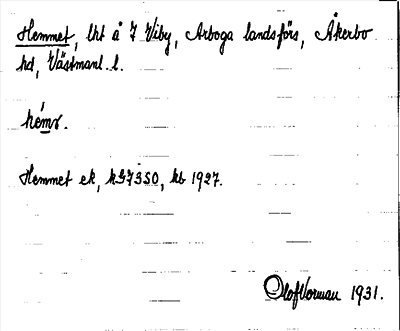 Hemmet, lht å 7 Viby, Arboga landsförs, Åkerbo
hd, Västmanl. l.
Hemmet ek, kb 1927.
Olof Norman 1931.